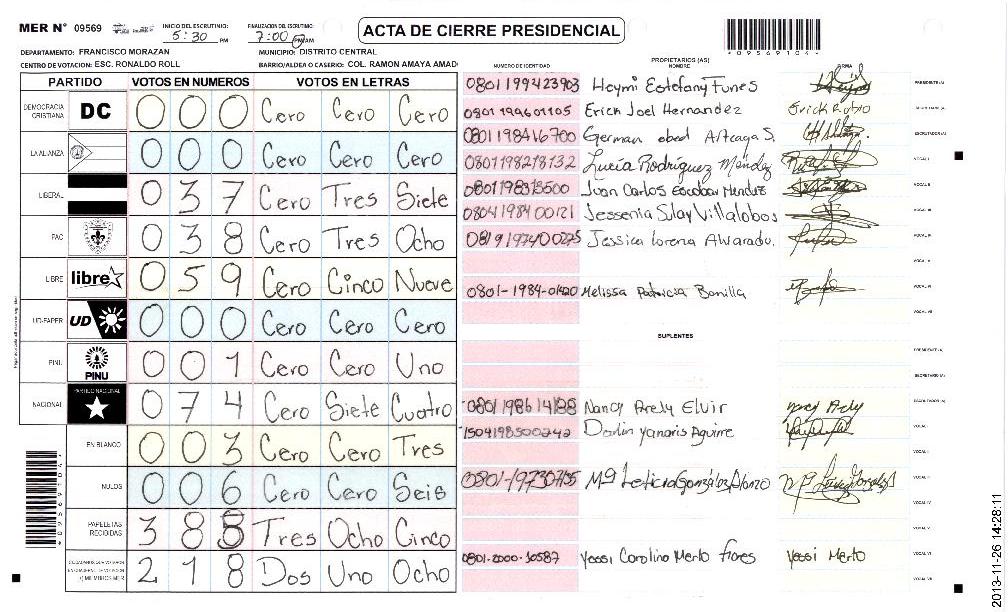 MER N° 09569
INICIO DEL ESCRUTINIO: 5:30 PM
FINALIZACIÓN DEL ESCRUTINIO: 7:00 PM AM
ACTA DE CIERRE PRESIDENCIAL
*09569104*
DEPARTAMENTO: FRANCISCO MORAZAN
MUNICIPIO: DISTRITO CENTRAL
CENTRO DE VOTACION: ESC. RONALDO ROLL
BARRIO/ALDEA O CASERIO: COL. RAMON AMAYA AMAD
PARTIDO VOTOS EN NUMEROS VOTOS EN LETRAS
DEMOCRACIA CRISTIANA DC 0 0 0 Cero Cero Cero
LA ALIANZA 0 0 0 Cero Cero Cero
LIBERAL 0 3 7 Cero Tres Siete
PAC 0 3 8 Cero Tres Ocho
LIBRE libre 0 5 9 Cero Cinco Nueve
UD-FAPER UD 0 0 0 Cero Cero Cero
PINU PINU 0 0 1 Cero Cero Uno
NACIONAL PARTIDO NACIONAL 0 7 4 Cero Siete Cuatro
EN BLANCO 0 0 3 Cero Cero Tres
NULOS 0 0 6 Cero Cero Seis
PAPELETAS RECIBIDAS 3 8 Tres Ocho Cinco
CIUDADANOS QUE VOTARON (+) MIEMBROS MER 2 1 8 Dos Uno Ocho
PROPIETARIOS (AS)
NUMERO DE IDENTIDAD NOMBRE FIRMA
0801199423903 Heymi Estefany Funes PRESIDENTE (A)
0801199601105 Erick Joel Hernandez Erick R SECRETARIO (A)
0801198416700 German obed Arteaga S. ESCRUTADOR (A)
0801198218132 Lucía Rodríguez Méndez VOCAL I
0801198313500 Juan Carlos Escobar Mendez VOCAL II
0804198400121 Jessenia Suay Villalobos VOCAL III
0819197400275 Jessica lorena Alvarado. VOCAL IV
VOCAL V
0801-1984-01420 Melissa Patricia Bonilla VOCAL VI
VOCAL VII
SUPLENTES
PRESIDENTE (A)
SECRETARIO (A)
0801198614188 Nancy Arely Elvir Nancy Arely ESCRUTADOR (A)
1504198500242 Darlin Yanaris Aguirre VOCAL I
VOCAL II
0801-1973 Mª Leticia González Alonzo VOCAL III
VOCAL IV
VOCAL V
0801-2000-10587 Yessi Carolina Merlo flores Yessi Merlo VOCAL VI
VOCAL VII
*09569104*
2013-11-26 14:28:11